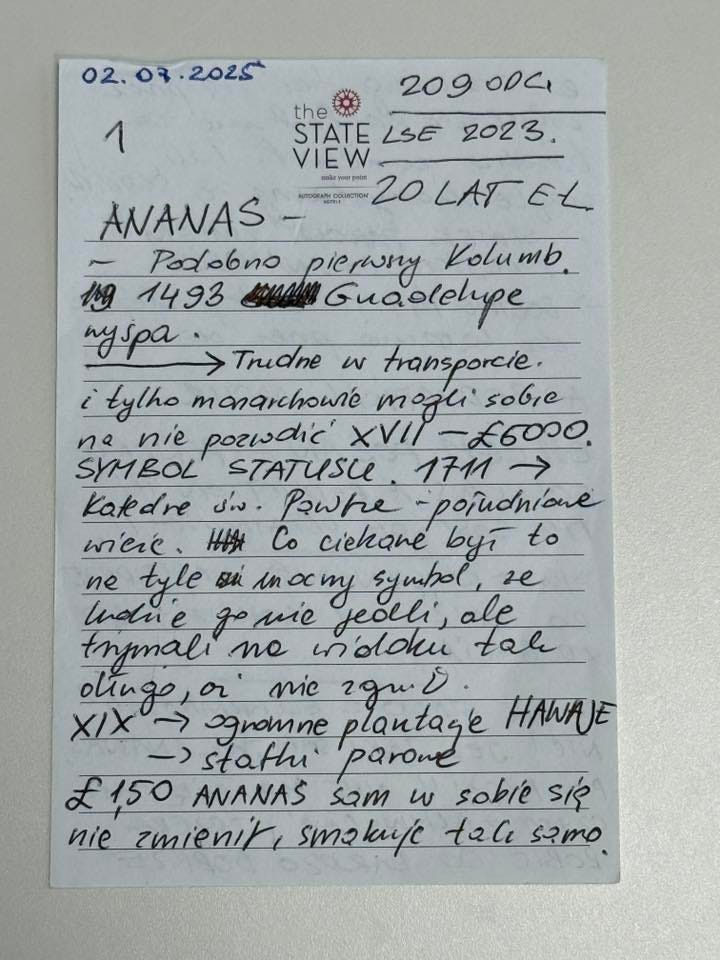 02.07.2025
209 ODC.
1
the
STATE
VIEW
make your point
AUTOGRAPH COLLECTION
HOTELS
LSE 2023.
20 LAT EŁ
ANANAS –
– Podobno pierwszy Kolumb.
1493 Guadelupe
wyspa.
→ Trudne w transporcie.
i tylko monarchowie mogli sobie
na nie pozwolić XVII – £6000.
SYMBOL STATUSU. 1711 →
Katedra św. Pawła - południowe
wieże. Co ciekawe był to
na tyle mocny symbol, że
ludzie go nie jedli, ale
trzymali na widoku tak
długo, aż nie zgnił.
XIX → ogromne plantacje HAWAJE
→ statki parowe
£1,50 ANANAS sam w sobie się
nie zmienił, smakuje tak samo.